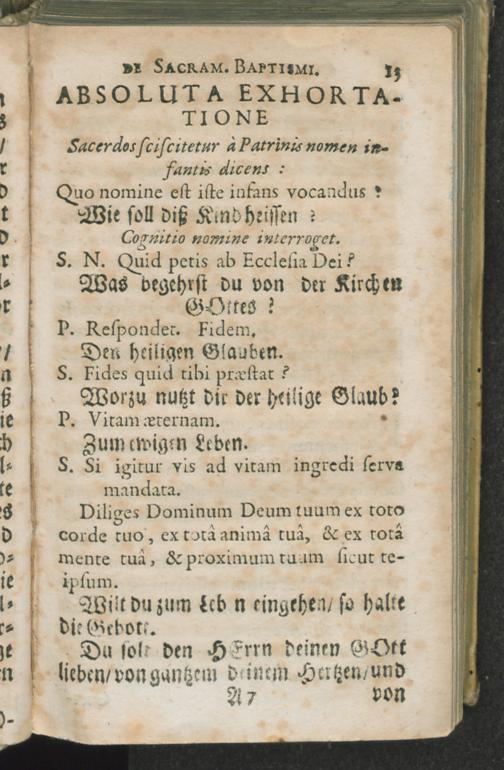 DE SACRAM. BAPTISMI. 13
ABSOLUTA EXHORTA-
TIONE
Sacerdos sciscitetur à Patrinis nomen in-
fantis dicens :
Quo nomine est iste infans vocandus ?
Wie soll diß Kind heissen ?
Cognitio nomine interroget.
S. N. Quid petis ab Ecclesia Dei ?
Was begehrst du von der Kirchen
GOttes ?
P. Respondet. Fidem.
Den heiligen Glauben.
S. Fides quid tibi præstat ?
Worzu nutzt dir der heilige Glaub?
P. Vitam æternam.
Zum ewigen Leben.
S. Si igitur vis ad vitam ingredi serva
mandata.
Diliges Dominum Deum tuum ex toto
corde tuo, ex totâ animâ tuâ, & ex totâ
mente tuâ, & proximum tuum sicut te-
ipsum.
Wilt du zum Leb n eingehen/ so halte
die Gebott.
Du solt den HErrn deinen GOtt
lieben/ von gantzem deinem Hertzen/ und
A 7 von